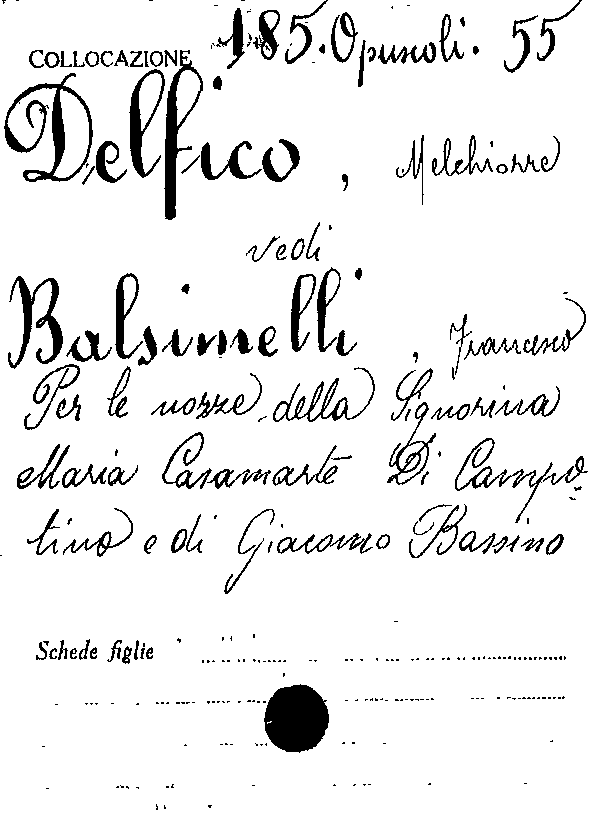 COLLOCAZIONE 185. Opuscoli. 55
Delfico, Melchiorre
vedi
Balsimelli, Francesco
Per le nozze della Signorina
Maria Casamarte Di Campo=
tino e di Giacomo Bassino
Schede figlie